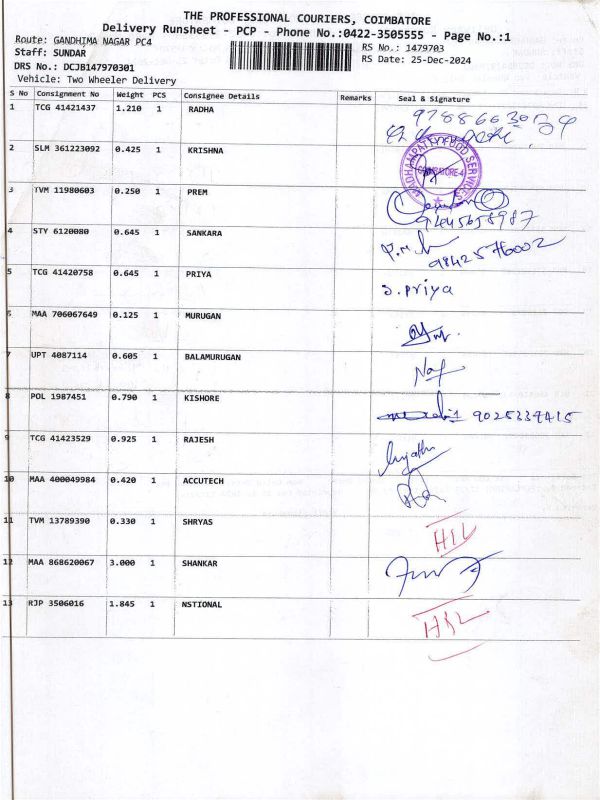 THE PROFESSIONAL COURIERS, COIMBATORE
Delivery Runsheet - PCP - Phone No.:0422-3505555 - Page No.:1
Route: GANDHIMA NAGAR PC4
RS No.: 1479703
Staff: SUNDAR
RS Date: 25-Dec-2024
DRS No.: DCJB147970301
Vehicle: Two Wheeler Delivery
S No Consignment No Weight PCS Consignee Details Remarks Seal & Signature
1 TCG 41421437 1.210 1 RADHA
2 SLM 361223092 0.425 1 KRISHNA
COIMBATORE-4
3 TVM 11980603 0.250 1 PREM
9445658987
4 STY 6120080 0.645 1 SANKARA
9842576002
5 TCG 41420758 0.645 1 PRIYA
S.Priya
6 MAA 706067649 0.125 1 MURUGAN
7 UPT 4087114 0.605 1 BALAMURUGAN
8 POL 1987451 0.790 1 KISHORE
9 TCG 41423529 0.925 1 RAJESH
10 MAA 400049984 0.420 1 ACCUTECH
11 TVM 13789390 0.330 1 SHRYAS
12 MAA 868620067 3.000 1 SHANKAR
13 RJP 3506016 1.845 1 NSTIONAL